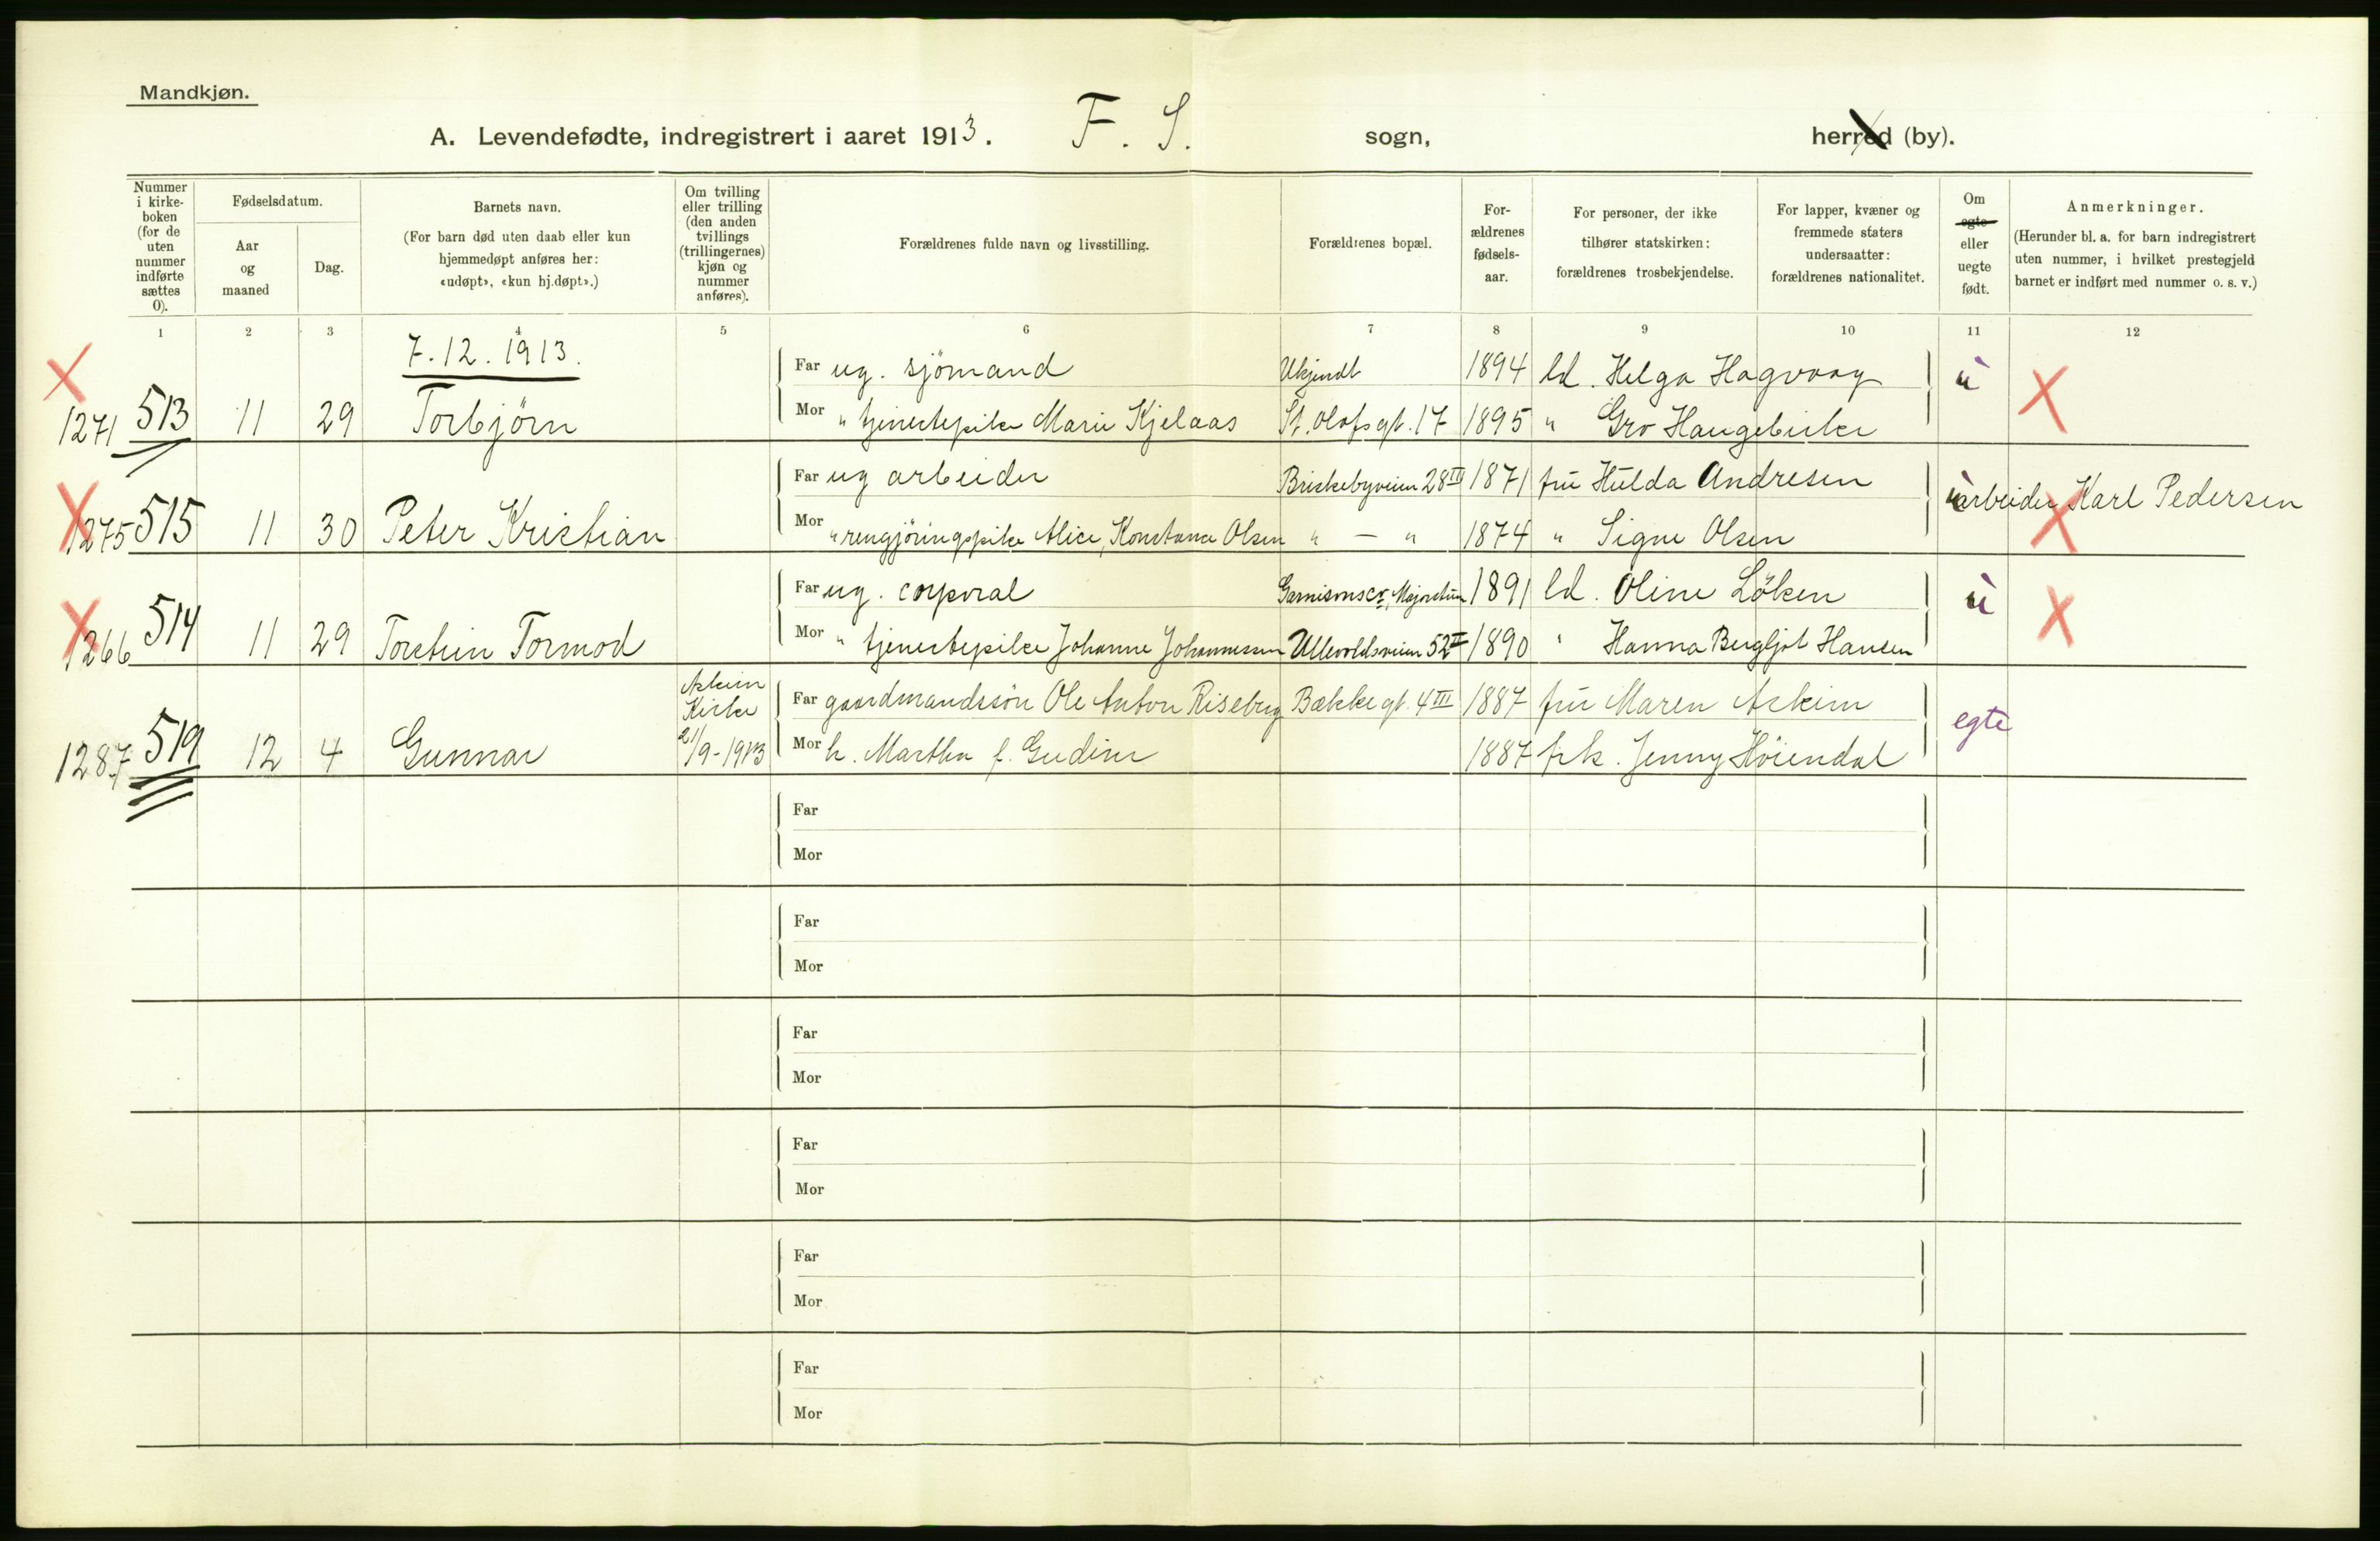 Mandkjøn.
A. Levendefødte, indregistrert i aaret 1913. F. S. sogn, herred (by).
Nummer i kirke-boken (for de uten nummer indførte sættes 0).
Fødselsdatum.
Aar og maaned
Dag.
Barnets navn.
(For barn død uten daab eller kun hjemmedøpt anføres her: «udøpt», «kun hj.døpt».)
Om tvilling eller trilling (den anden tvillings (trillingernes) kjøn og nummer anføres).
Forældrenes fulde navn og livsstilling.
Forældrenes bopæl.
For-ældrenes fødsels-aar.
For personer, der ikke tilhører statskirken: forældrenes trosbekjendelse.
For lapper, kvæner og fremmede staters undersaatter: forældrenes nationalitet.
Om egte eller uegte født.
Anmerkninger.
(Herunder bl. a. for barn indregistrert uten nummer, i hvilket prestegjeld barnet er indført med nummer o. s. v.)
1 2 3 4 5 6 7 8 9 10 11 12
7.12.1913.
Far ug. sjömand Ukjendt 1894 ld. Helga Hagvaag u
1271 513 11 29 Torbjörn Mor " tjenestepike Marie Kjelaas St. Olafs gt. 17 1895 " Gro Haugebirke
Far ug arbeider Briskebyveien 28 III 1871 fru Hulda Andresen u arbeider Karl Pedersen
1275 515 11 30 Peter Kristian Mor " rengjöringspike Alice, Konstance Olsen " — " 1874 " Signe Olsen
Far ug. corporal Garnisonsc, Majorstuen 1891 ld. Oline Löken u
1266 514 11 29 Torstein Tormod Mor " tjenestepike Johanne Johannessen Ullevoldsveien 52 II 1890 " Hanna Bergljot Hansen
Askim Kirke Far gaardmandssön Ole Anton Riseberg Bækkegt. 4 III 1887 fru Maren Askim egte
1287 519 12 4 Gunnar 21/9-1913 Mor h. Martha f. Gudim 1887 frk. Jenny Höiendal
Far
Mor
Far
Mor
Far
Mor
Far
Mor
Far
Mor
Far
Mor